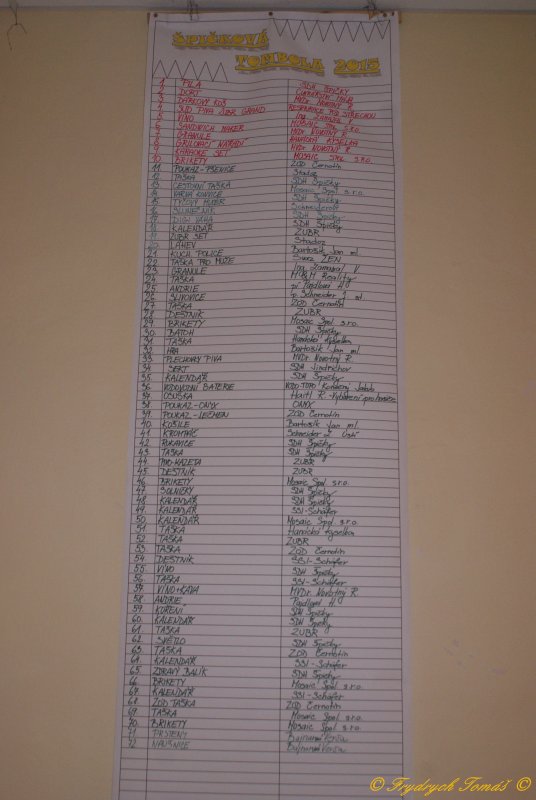 ŠPIČKOVÁ
TOMBOLA 2015
1. PILA SDH ŠPIČKY
2. DORT
3. DÁRKOVÝ KOŠ MVDr. NOVOTNÝ R.
4. SUD PIVA ZUBR GRAND RESTAURACE POD STŘECHOU
5. VÍNO Ing. Zamazal V.
6. SANDWICH MAKER MOSAIC Spol. s.r.o.
7. GRANULE MVDr. NOVOTNÝ R.
8. GRILOVACÍ NÁŘADÍ HANÁCKÁ KYSELKA
9. KARAOKE SET MVDr. NOVOTNÝ R.
10. BRIKETY MOSAIC Spol. s.r.o.
11. POUKAZ-PŠENICE ZOD Černotín
12. TAŠKA Stadoz
13. CESTOVNÍ TAŠKA SDH Špičky
14. VARNÁ KONVICE Mosaic Spol. s.r.o.
15. TYČOVÝ MIXER SDH Špičky
16. SLUNEČNÍK Schneiderová
17. DIGI VÁHA SDH Špičky
18. KALENDÁŘ SDH Špičky
19. ZUBR SET ZUBR
20. LÁHEV Stadoz
21. KUCH. POLICE Bartošík Jan ml.
22. TAŠKA PRO MUŽE Svaz ŽEN
23. GRANULE Ing. Zamazal V.
24. TAŠKA M&M Reality
25. ANDRIE Pajdlová H.
26. SLIVOVICE p. Schneider J. ml.
27. TAŠKA ZOD Černotín
28. DEŠTNÍK ZUBR
29. BRIKETY Mosaic Spol. s.r.o.
30. BATOH SDH Špičky
31. TAŠKA Hanácká Kyselka
32. HRA Bartošík Jan ml.
33. PLECHOVKY PIVA MVDr. Novotný R.
34. SEKT SDH Jindřichov
35. KALENDÁŘ SDH Špičky
36. VODOVODNÍ BATERIE VODO TOPO Konšený Jakub
37. OSUŠKA Haitl R. - Vybavení pro hasiče
38. POUKAZ-ONYX ONYX
39. POUKAZ-LEŠMEN ZOD Černotín
40. KOŠILE Bartošík Jan ml.
41. KROMPÁČ Schneider Z. Ústí
42. RUKAVICE SDH Špičky
43. TAŠKA SDH Špičky
44. ZUBR
45. DEŠTNÍK ZUBR
46. BRIKETY Mosaic Spol. s.r.o.
47. SOLNIČKY SDH Špičky
48. KALENDÁŘ SDH Špičky
49. KALENDÁŘ SSI-Schäfer
50. KALENDÁŘ Mosaic Spol s.r.o.
51. TAŠKA Hanácká kyselka
52. TAŠKA ZUBR
53. TAŠKA ZOD Černotín
54. DEŠTNÍK SSI-Schäfer
55. VÍNO SDH Špičky
56. TAŠKA SSI-Schäfer
57. VÍNO+KÁVA MVDr. Novotný R.
58. ANDRIE Pajdlová H.
59. KOŘENÍ SDH Špičky
60. KALENDÁŘ SDH Špičky
61. TAŠKA ZUBR
62. SVĚTLO SDH Špičky
63. TAŠKA ZOD Černotín
64. KALENDÁŘ SSI-Schäfer
65. ZDRAVÝ BALÍK SDH Špičky
66. BRIKETY Mosaic Spol s.r.o.
67. KALENDÁŘ SSI-Schäfer
68. ZOD TAŠKA ZOD Černotín
69. TAŠKA Mosaic Spol s.r.o.
70. BRIKETY Mosaic Spol s.r.o.
71. PRSTENY
72. NÁUŠNICE
© Frydrych Tomáš ©